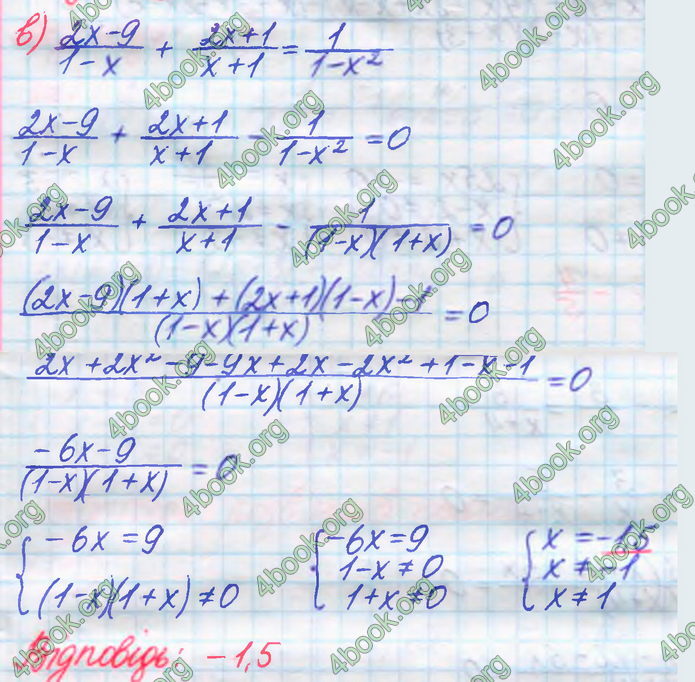 в) (2x-9)/(1-x) + (2x+1)/(x+1) = 1/(1-x²)
(2x-9)/(1-x) + (2x+1)/(x+1) - 1/(1-x²) = 0
(2x-9)/(1-x) + (2x+1)/(x+1) - 1/((1-x)(1+x)) = 0
((2x-9)(1+x) + (2x+1)(1-x) - 1)/((1-x)(1+x)) = 0
(2x + 2x² - 9 - 9x + 2x - 2x² + 1 - x - 1)/((1-x)(1+x)) = 0
(-6x-9)/((1-x)(1+x)) = 0
{ -6x = 9
(1-x)(1+x) ≠ 0
{ -6x = 9
1-x ≠ 0
1+x ≠ 0
{ x = -1,5
x ≠ -1
x ≠ 1
Відповідь: -1,5
4book.org